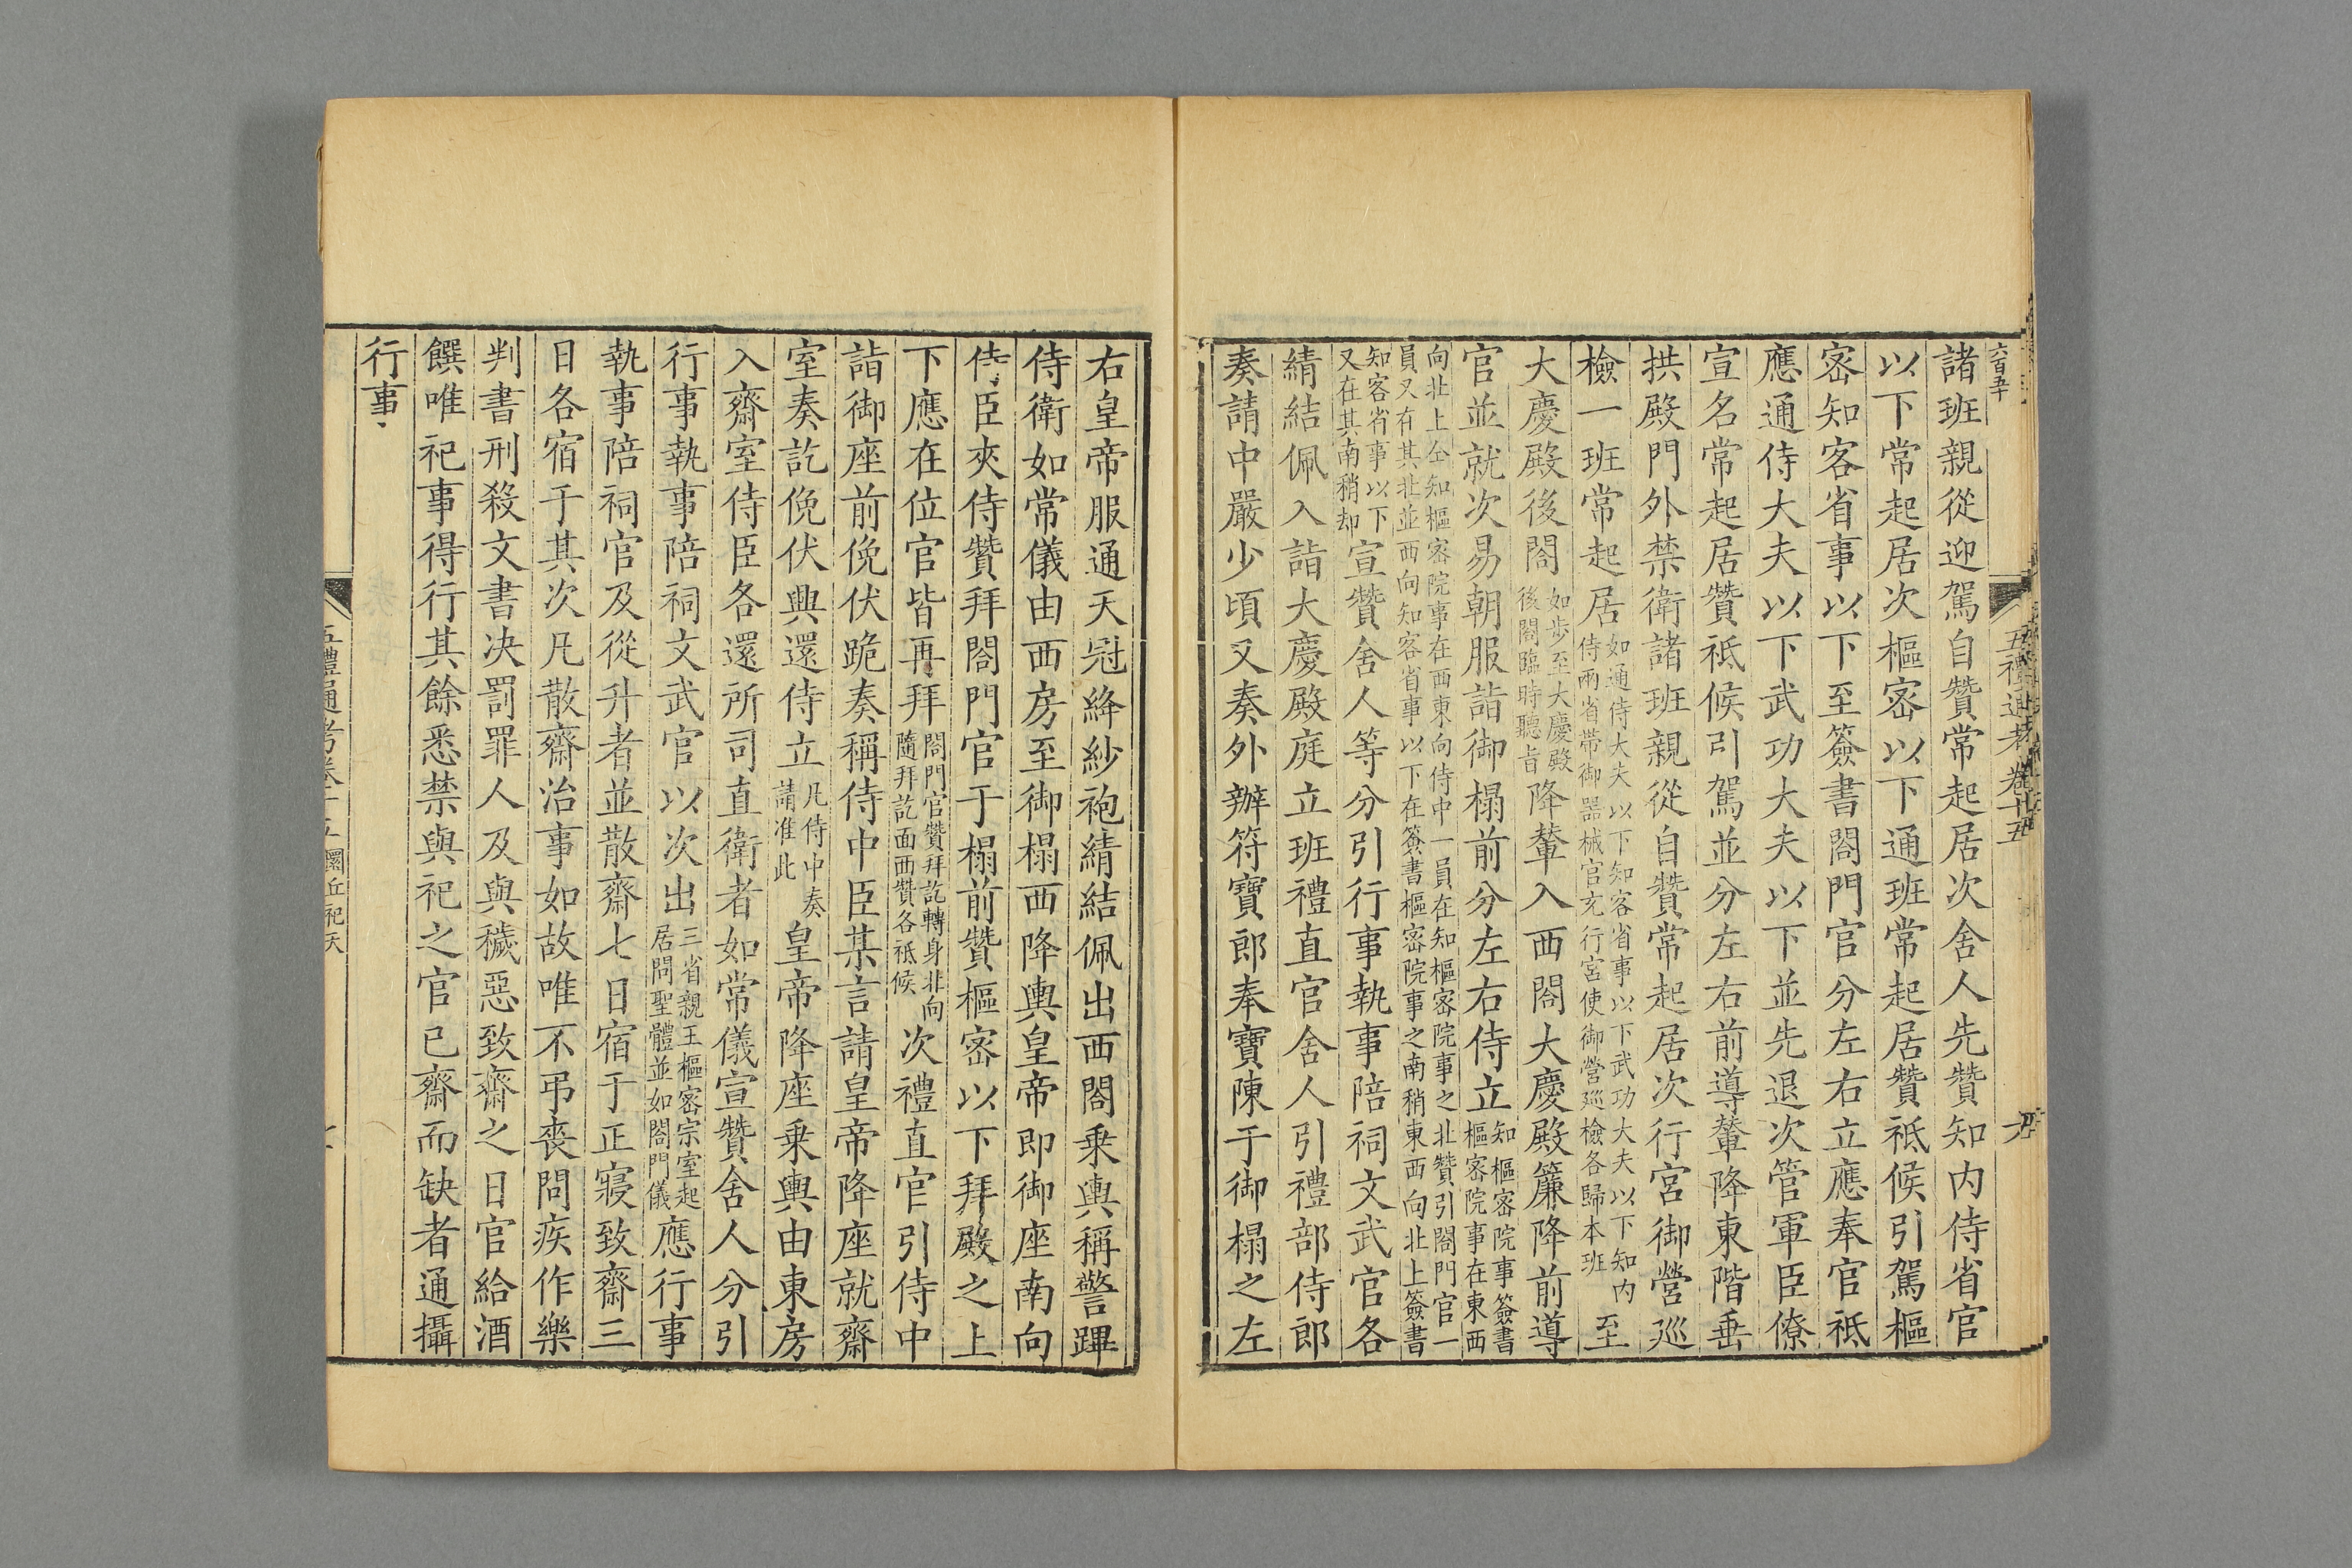 諸班親從迎駕自贊常起居次舍人先贊知内侍省官
以下常起居次樞宻以下通班常起居贊祇候引駕樞
宻知客省事以下至簽書閤門官分左右立應奉官祗
應通侍大夫以下武功大夫以下並先退次管軍臣僚
宣名常起居贊祇候引駕並分左右前導輦降東階垂
拱殿門外禁衛諸班親從自贊常起居次行宮御營廵
檢一班常起居如通侍大夫以下知客省事以下武功大夫以下知内
侍兩省帶御器械官充行宮使御營廵檢各歸本班至
大慶殿後閤如步至大慶殿
後閤臨時聽旨降輦入西閤大慶殿簾降前導
官並就次易朝服詣御榻前分左右侍立知樞宻院事簽書
樞宻院事在東西
向北上仝知樞宻院事在西東向侍中一員在知樞宻院事之北贊引閤門官一
員又在其北並西向知客省事以下在簽書樞宻院事之南稍東西向北上簽書
知客省事以下
又在其南稍却宣贊舍人等分引行事執事陪祠文武官各
綪結佩入詣大慶殿庭立班禮直官舍人引禮部侍郎
奏請中嚴少頃又奏外辦符寶郎奉寶陳于御榻之左
右皇帝服通天冠絳紗袍綪結佩出西閤乗輿稱警蹕
侍衛如常儀由西房至御榻西降輿皇帝即御座南向
侍臣夾侍贊拜閤門官于榻前贊樞宻以下拜殿之上
下應在位官皆再拜閤門官贊拜訖轉身北向
隨拜訖面西贊各祗候次禮直官引侍中
詣御座前俛伏跪奏稱侍中臣某言請皇帝降座就齋
室奏訖俛伏興還侍立凡侍中奏
請准此皇帝降座乗輿由東房
入齋室侍臣各還所司直衛者如常儀宣贊舍人分引
行事執事陪祠文武官以次出三省親王樞宻宗室起
居問聖體並如閤門儀應行事
執事陪祠官及從升者並散齋七日宿于正寢致齋三
日各宿于其次凡散齋治事如故唯不弔喪問疾作樂
判書刑殺文書决罰罪人及與穢惡致齋之日官給酒
饌唯祀事得行其餘悉禁與祀之官已齋而缺者通攝
行事